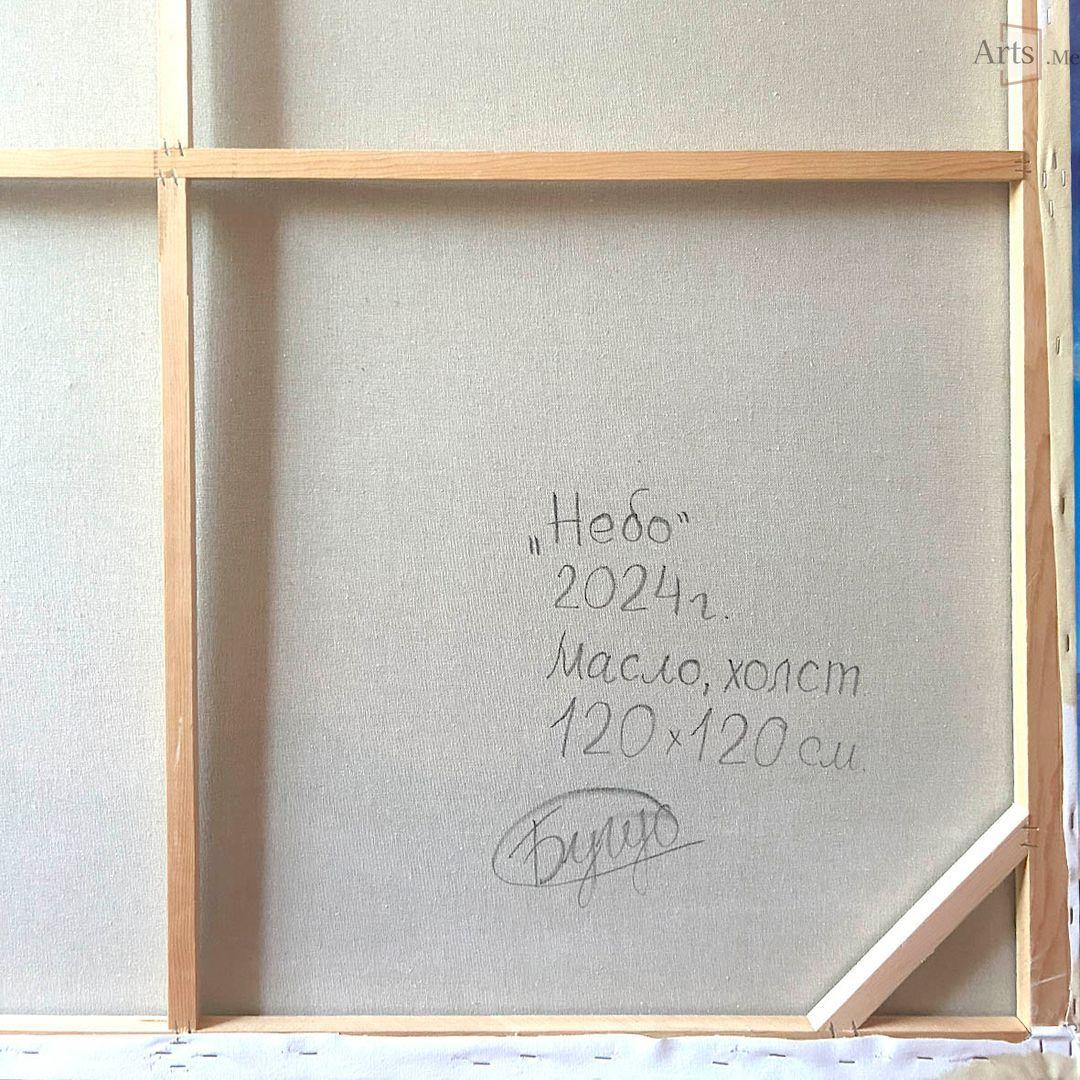 Arts.Me
„Небо"
2024 г.
Масло, холст
120 x 120 см.